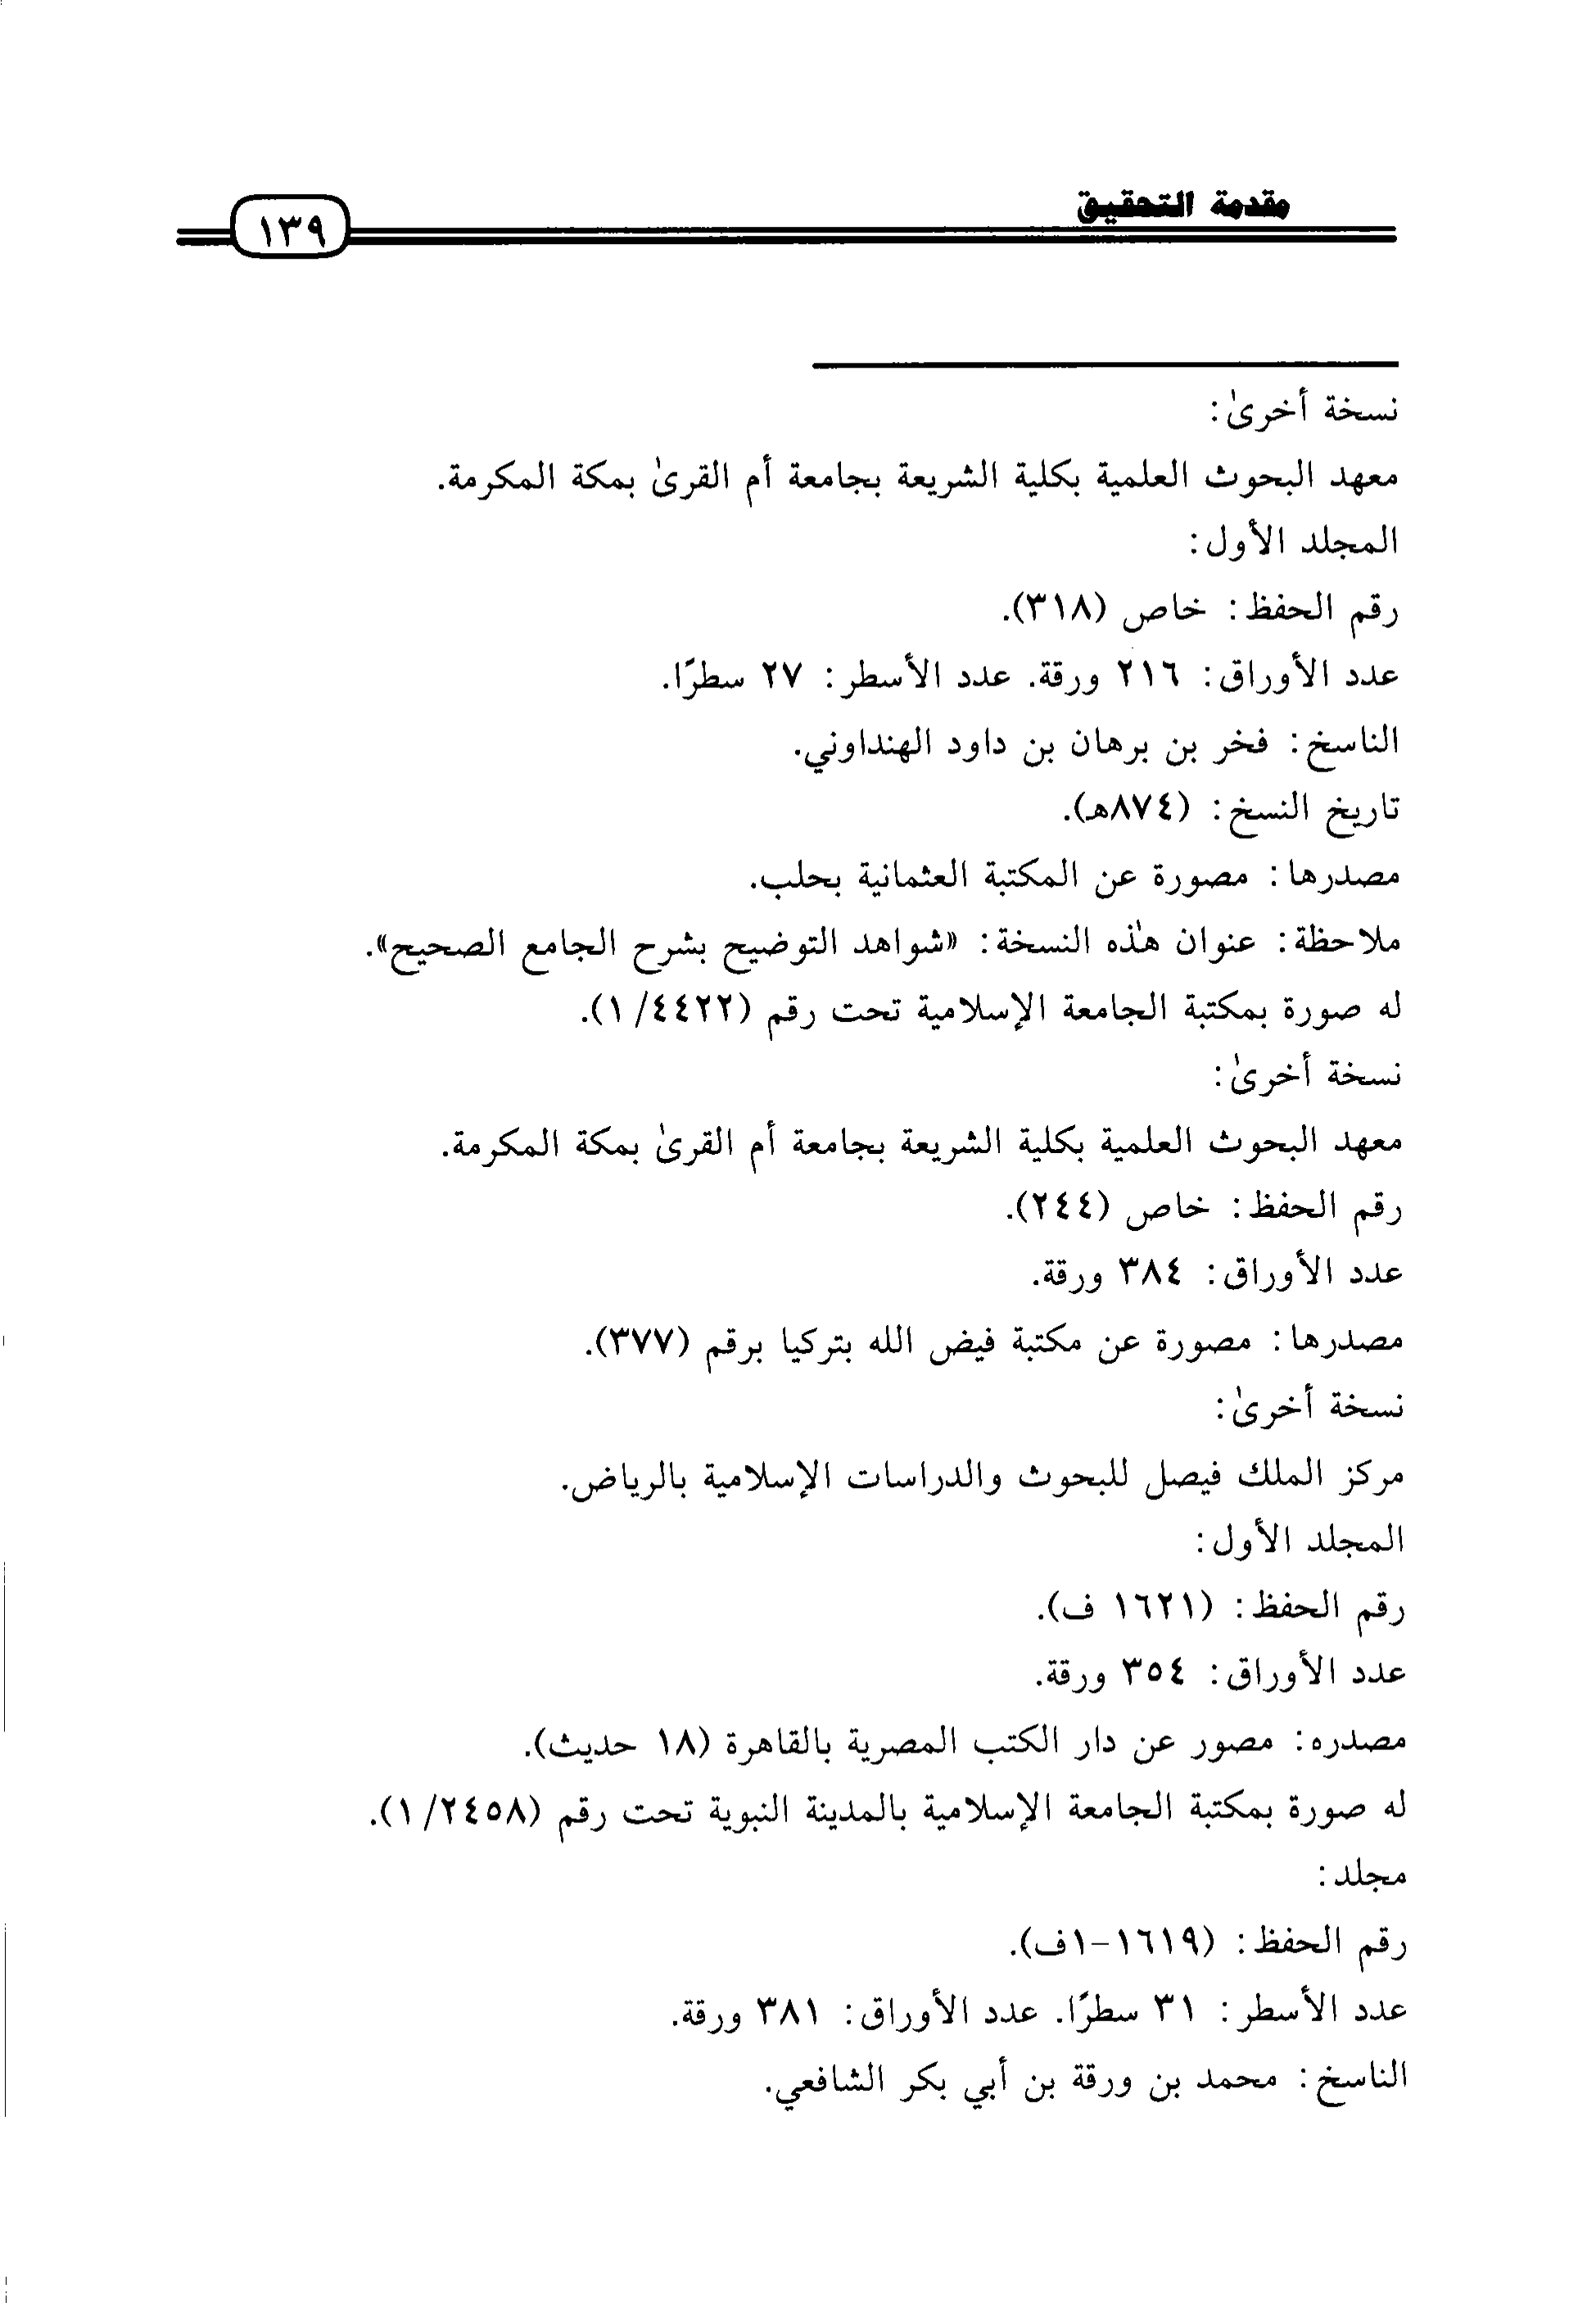 مقدمة التحقيق
١٣٩
نسخة أخرىٰ:
معهد البحوث العلمية بكلية الشريعة بجامعة أم القرىٰ بمكة المكرمة.
المجلد الأول:
رقم الحفظ: خاص (٣١٨).
عدد الأوراق: ٢١٦ ورقة. عدد الأسطر: ٢٧ سطرًا.
الناسخ: فخر بن برهان بن داود الهنداوني.
تاريخ النسخ: (٨٧٤هـ).
مصدرها: مصورة عن المكتبة العثمانية بحلب.
ملاحظة: عنوان هذٰه النسخة: «شواهد التوضيح بشرح الجامع الصحيح».
له صورة بمكتبة الجامعة الإسلامية تحت رقم (٤٤٢٢/ ١).
نسخة أخرىٰ:
معهد البحوث العلمية بكلية الشريعة بجامعة أم القرىٰ بمكة المكرمة.
رقم الحفظ: خاص (٢٤٤).
عدد الأوراق: ٣٨٤ ورقة.
مصدرها: مصورة عن مكتبة فيض الله بتركيا برقم (٣٧٧).
نسخة أخرىٰ:
مركز الملك فيصل للبحوث والدراسات الإسلامية بالرياض.
المجلد الأول:
رقم الحفظ: (١٦٢١ ف).
عدد الأوراق: ٣٥٤ ورقة.
مصدره: مصور عن دار الكتب المصرية بالقاهرة (١٨ حديث).
له صورة بمكتبة الجامعة الإسلامية بالمدينة النبوية تحت رقم (٢٤٥٨/ ١).
مجلد:
رقم الحفظ: (١٦١٩-١ف).
عدد الأسطر: ٣١ سطرًا. عدد الأوراق: ٣٨١ ورقة.
الناسخ: محمد بن ورقة بن أبي بكر الشافعي.